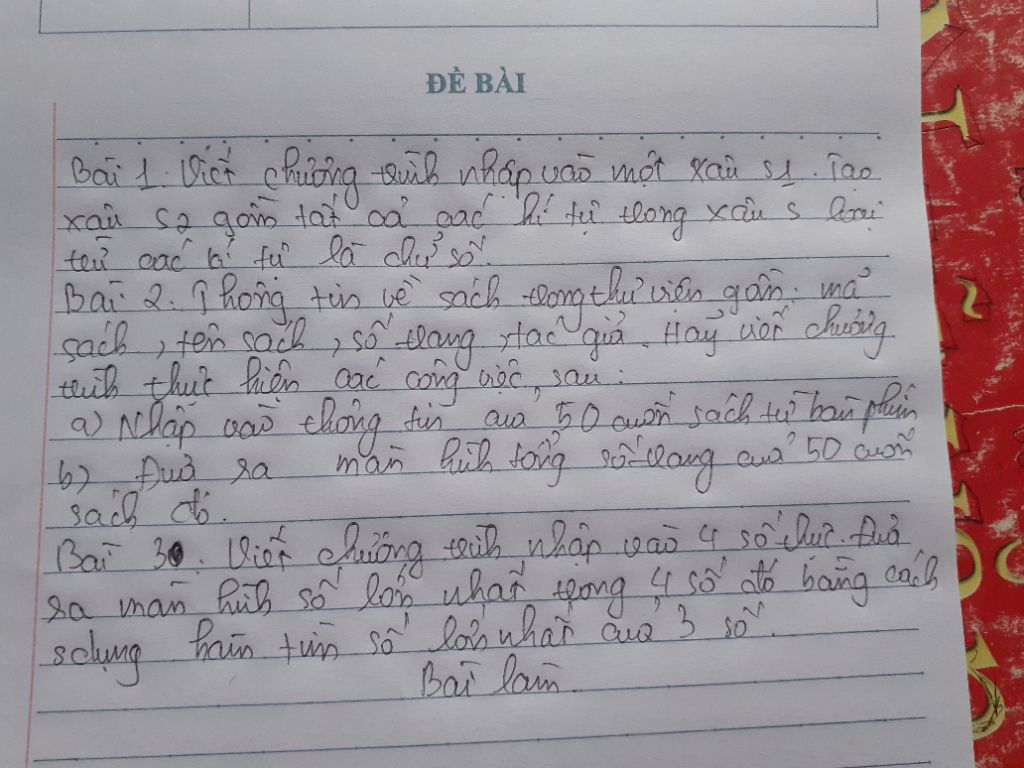 ĐỀ BÀI
Bài 1. Viết chương trình nhập vào một xâu S1. Tạo
xâu S2 gồm tất cả các kí tự trong xâu S loại
trừ các kí tự là chữ số.
Bài 2. Thông tin về sách trong thư viện gồm: mã
sách, tên sách, số trang, tác giả. Hãy viết chương
trình thực hiện các công việc sau:
a) Nhập vào thông tin của 50 cuốn sách từ bàn phím
b) Đưa ra màn hình tổng số trang của 50 cuốn
sách đó.
Bài 3. Viết chương trình nhập vào 4 số thực. Đưa
ra màn hình số lớn nhất trong 4 số đó bằng cách
sdụng hàm tìm số lớn nhất của 3 số.
Bài làm